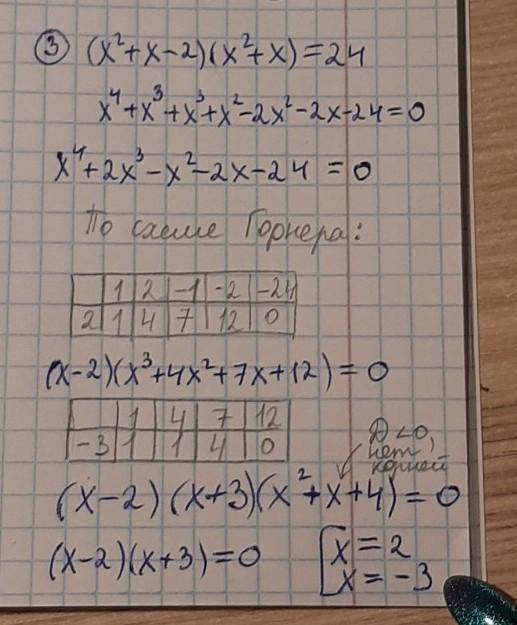 ③ (x²+x-2)(x²+x)=24
x⁴+x³+x³+x²-2x²-2x-24=0
x⁴+2x³-x²-2x-24=0
По схеме Горнера:
1 2 -1 -2 -24
2 1 4 7 12 0
(x-2)(x³+4x²+7x+12)=0
1 4 7 12
-3 1 1 4 0
D<0,
нет
корней
(x-2)(x+3)(x²+x+4)=0
(x-2)(x+3)=0 [x=2
x=-3